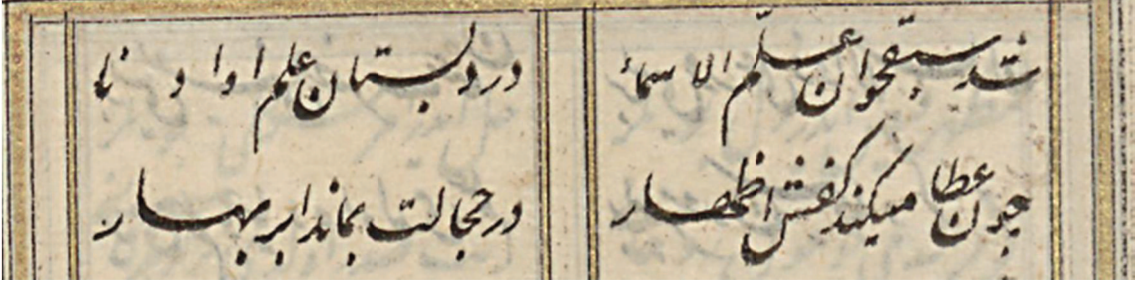 شد سبقخوان علم الاسما در دبستان علم او ادونا
چون عطا میکند کفش اظهار در خجالت بماند ابر بهار